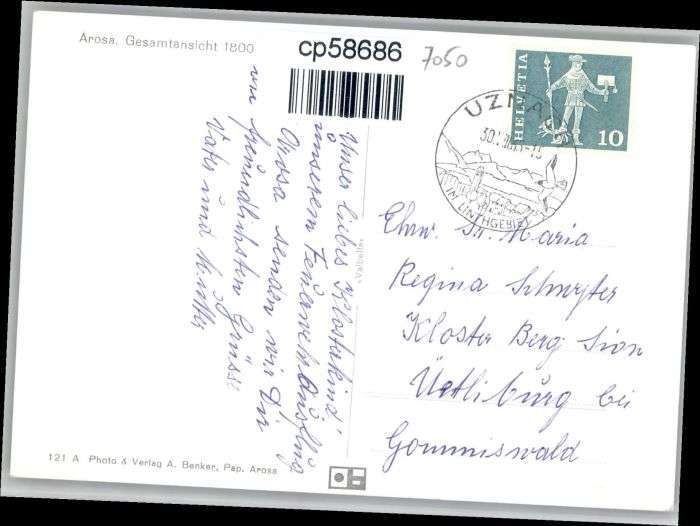 Arosa, Gesamtansicht 1800
cp58686
7050
HELVETIA
10
UZNACH
IM LINTHGEBIET
Unser liebes Klosterkind!
unserem Ferienausflug
Arosa senden wir Dir
die freundlichsten Grüsse
Vater und Mutter
Ehrw. Sr. Maria
Regina Schwyter
Kloster Berg Sion
Uetliburg bei
Gommiswald
121 A Photo & Verlag A. Benker, Pap. Arosa